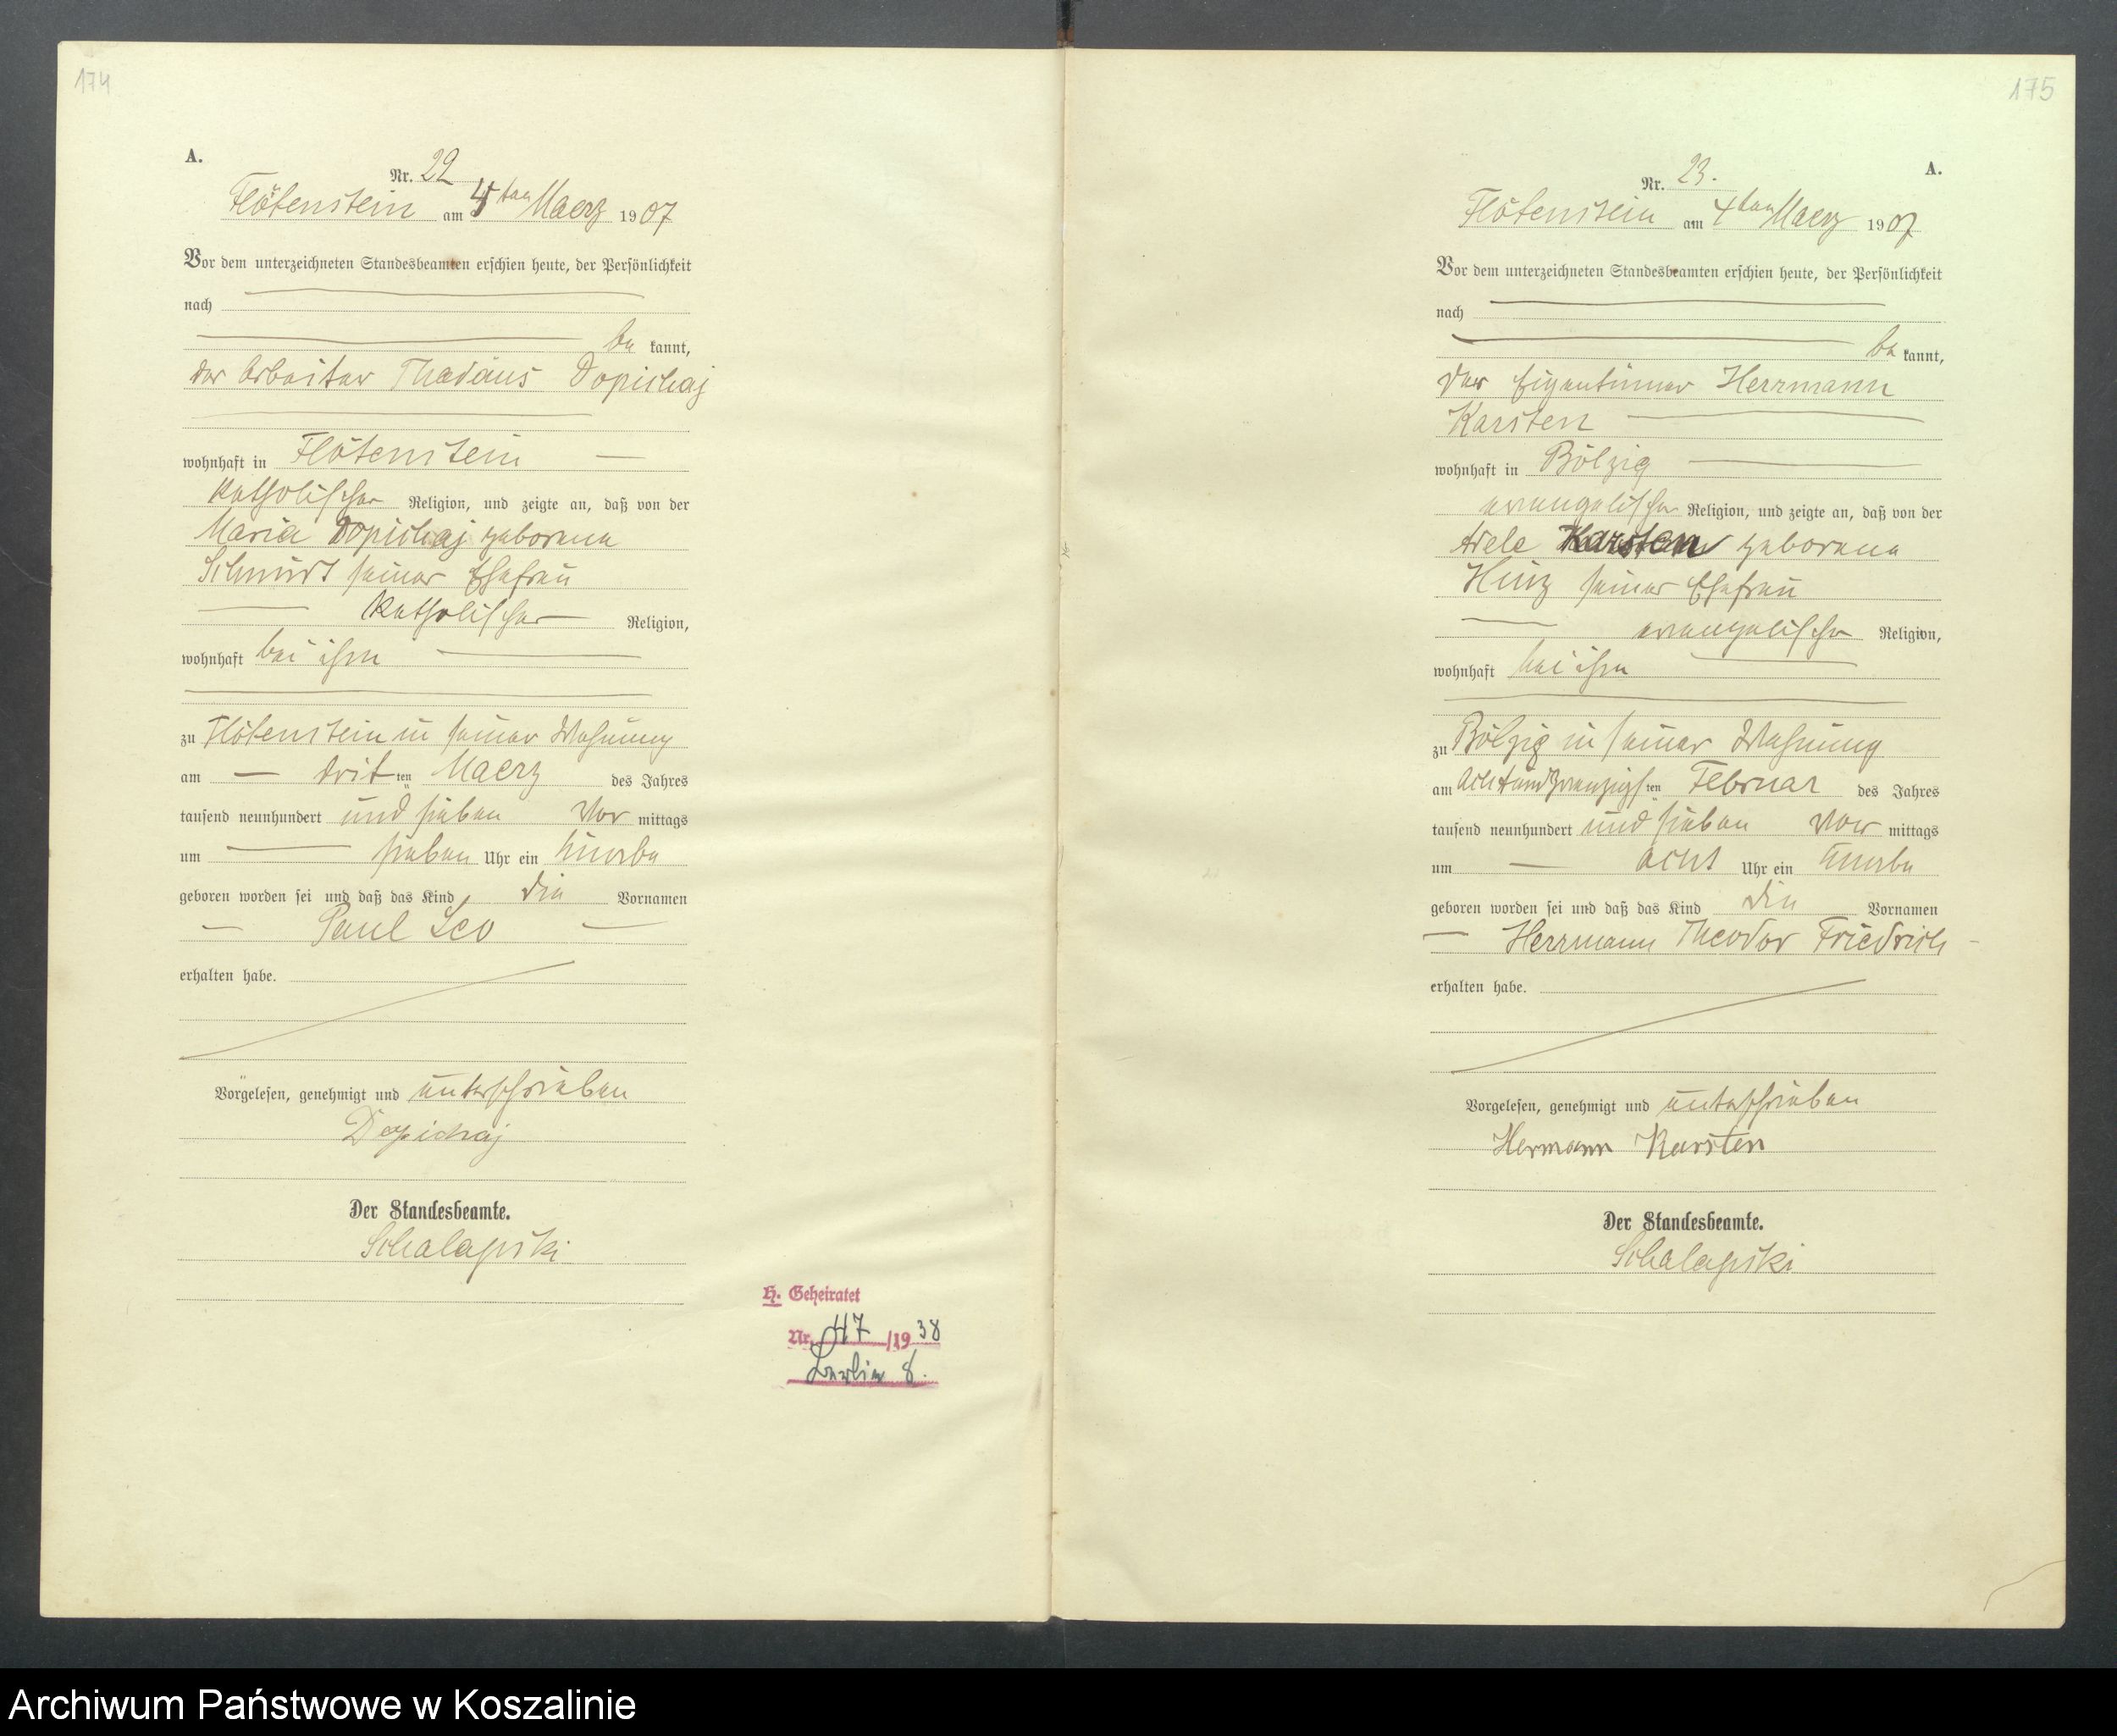 174
A.
Nr. 22
Flötenstein am 4ten Maerz 1907
Vor dem unterzeichneten Standesbeamten erschien heute, der Persönlichkeit
nach
be kannt,
der Arbeiter Thadäus Dopichaj
wohnhaft in Flötenstein
katholischer Religion, und zeigte an, daß von der
Maria Dopichaj geborene
Schmidt seiner Ehefrau
katholischer Religion,
wohnhaft bei ihm
zu Flötenstein in seiner Wohnung
am dritten Maerz des Jahres
tausend neunhundert und sieben Vor mittags
um sieben Uhr ein Knabe
geboren worden sei und daß das Kind die Vornamen
Paul Leo
erhalten habe.
Vorgelesen, genehmigt und unterschrieben
Dopichaj
Der Standesbeamte.
Schalapski
H. Geheiratet
Nr. 47 /19 38
Berlin 8.
175
A.
Nr. 23.
Flötenstein am 4ten Maerz 1907
Vor dem unterzeichneten Standesbeamten erschien heute, der Persönlichkeit
nach
be kannt,
der Eigentümer Herrmann
Karsten
wohnhaft in Bölzig
evangelischer Religion, und zeigte an, daß von der
Adele Karsten geborene
Hinz seiner Ehefrau
evangelischer Religion,
wohnhaft bei ihm
zu Bölzig in seiner Wohnung
am achtundzwanzigsten Februar des Jahres
tausend neunhundert und sieben Vor mittags
um acht Uhr ein Knabe
geboren worden sei und daß das Kind die Vornamen
Herrmann Theodor Friedrich
erhalten habe.
Vorgelesen, genehmigt und unterschrieben
Hermann Karsten
Der Standesbeamte.
Schalapski
Archiwum Państwowe w Koszalinie